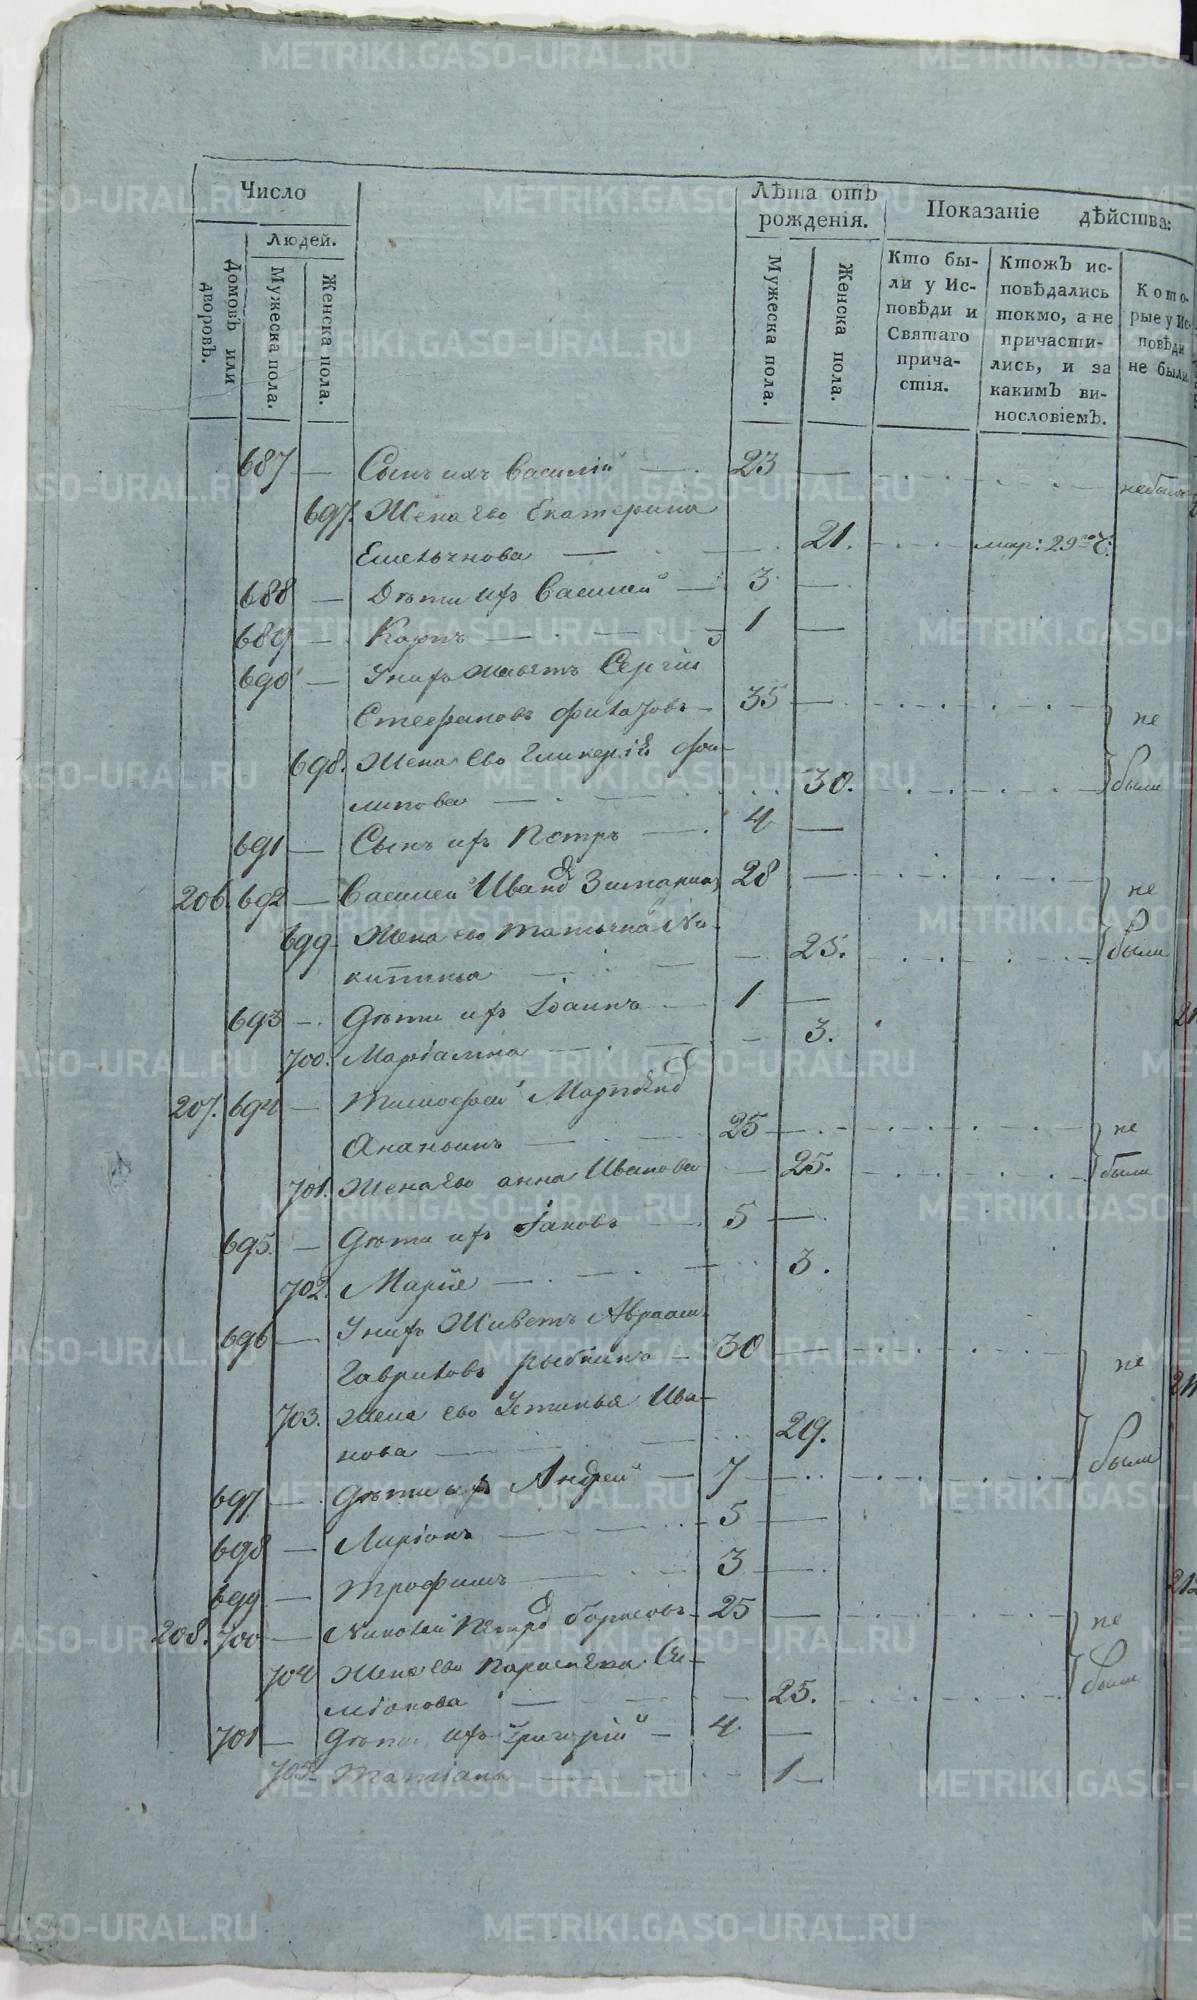 Число
Лѣта отъ рожденія.
Показаніе дѣйства:
Людей.
Домовъ или дворовъ.
Мужеска пола.
Женска пола.
Мужеска пола.
Женска пола.
Кто бы-
ли у Ис-
повѣди и
Святаго
прича-
стія.
Ктожъ ис-
повѣдались
токмо, а не
причасти-
лись, и за
какимъ ви-
нословіемъ.
Кото-
рые у Ис-
повѣди
не были
687 — Сынъ ихъ Василій — 23 — небылъ
697. Жена ево Екатерина
Емельянова — 21. мар: 29
688 — Дѣти ихъ Василей — 3 —
689 — Карпъ — 1 —
690 — У нихъ живетъ Сергій
Стефановъ — 35 — не
698. Жена ево Гликерія Фи-
липова — 30. были
691 — Сынъ ихъ Петръ — 4 —
206. 692 — Василей Иванов 28 — не
699. Жена ево Татьяна Ни-
китина — 25. были
693 — Дѣти ихъ Іоаннъ — 1 —
700. Маріамна — 3.
207. 694 — Тимофей
Ананьинъ — 25 — не
701. Жена ево анна Иванова — 25. были
695. — Дѣти ихъ Іаковъ — 5 —
702. Марія — 3.
696 — У нихъ Живетъ Авраам
Гавриловъ рыбкинъ — 30 — не
703. Жена ево Устинья Ива-
нова — 29. были
697 — Дѣти ихъ Андрей — 7 —
698 — Ларіонъ — 5 —
699 — Трофимъ — 3 —
208. 700 — Николай Петров борисовъ 25 — не
704 Жена ево Параскева Си-
міонова — 25. были
701 — Дѣти ихъ Григорій — 4 —
705. Татіана — 1 —
METRIKI.GASO-URAL.RU